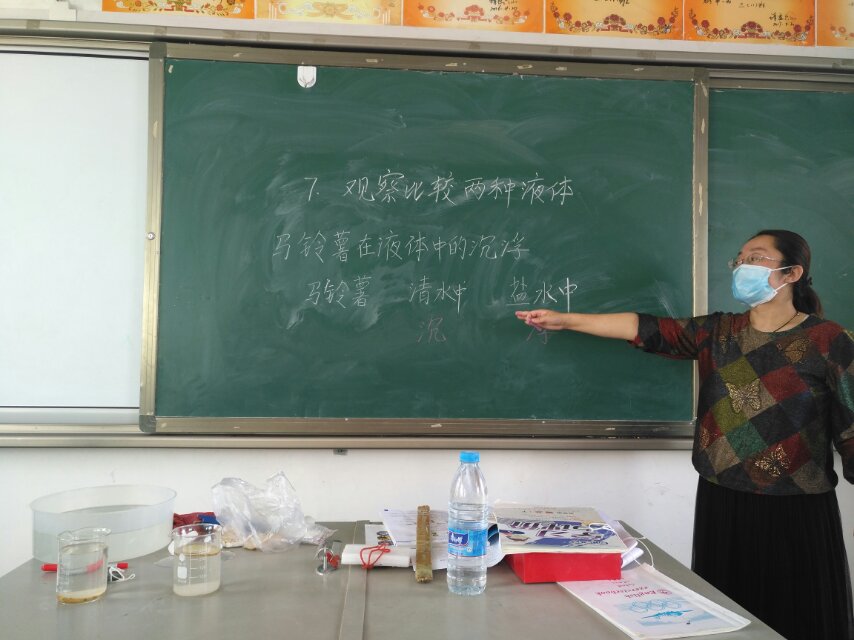 7. 观察比较两种液体
马铃薯在液体中的沉浮
马铃薯 清水中 盐水中
沉 浮
English